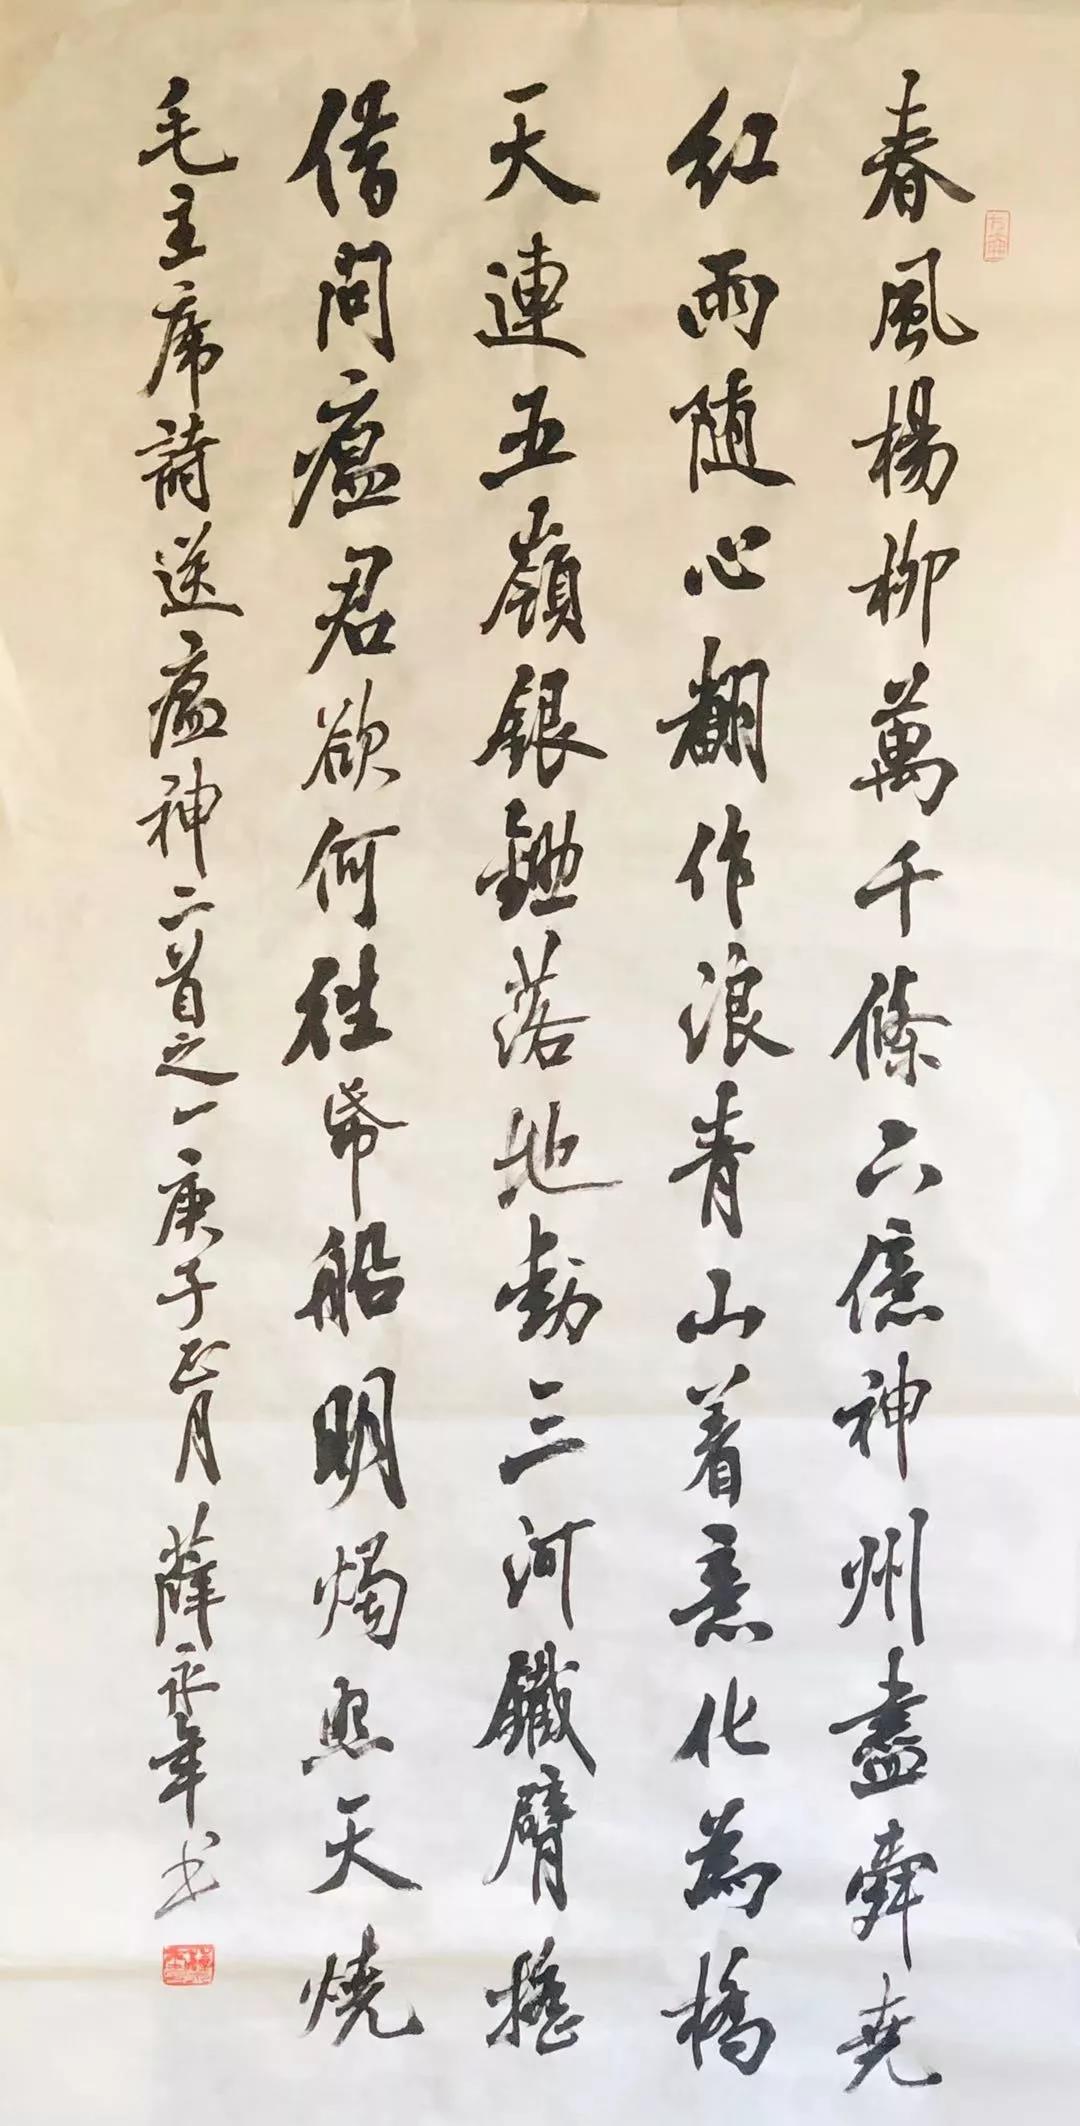 春風楊柳萬千條六億神州盡舜堯
紅雨随心翻作浪青山着意化為橋
天連五嶺銀鋤落地動三河鐵臂搖
借问瘟君欲何往帋船明燭照天燒
毛主席詩送瘟神二首之一庚子正月薛永年书